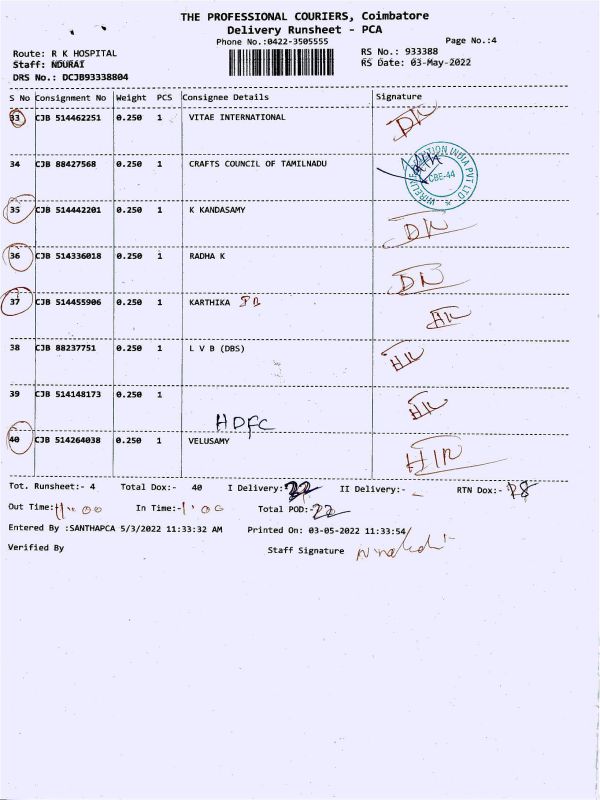 THE PROFESSIONAL COURIERS, Coimbatore
Delivery Runsheet - PCA
Phone No.:0422-3505555
Page No.:4
Route: R K HOSPITAL
RS No.: 933388
Staff: NDURAI
RS Date: 03-May-2022
DRS No.: DCJB93338804
S No Consignment No Weight PCS Consignee Details Signature
33 CJB 514462251 0.250 1 VITAE INTERNATIONAL
34 CJB 88427568 0.250 1 CRAFTS COUNCIL OF TAMILNADU
CBE-44
35 CJB 514442201 0.250 1 K KANDASAMY
36 CJB 514336018 0.250 1 RADHA K
37 CJB 514455906 0.250 1 KARTHIKA
38 CJB 88237751 0.250 1 L V B (DBS)
39 CJB 514148173 0.250 1
HDFC
40 CJB 514264038 0.250 1 VELUSAMY
Tot. Runsheet:- 4 Total Dox:- 40 I Delivery:- 22 II Delivery:- - RTN Dox:-
Out Time:- 11.00 In Time:- 1.00 Total POD:- 22
Entered By :SANTHAPCA 5/3/2022 11:33:32 AM Printed On: 03-05-2022 11:33:54
Verified By Staff Signature